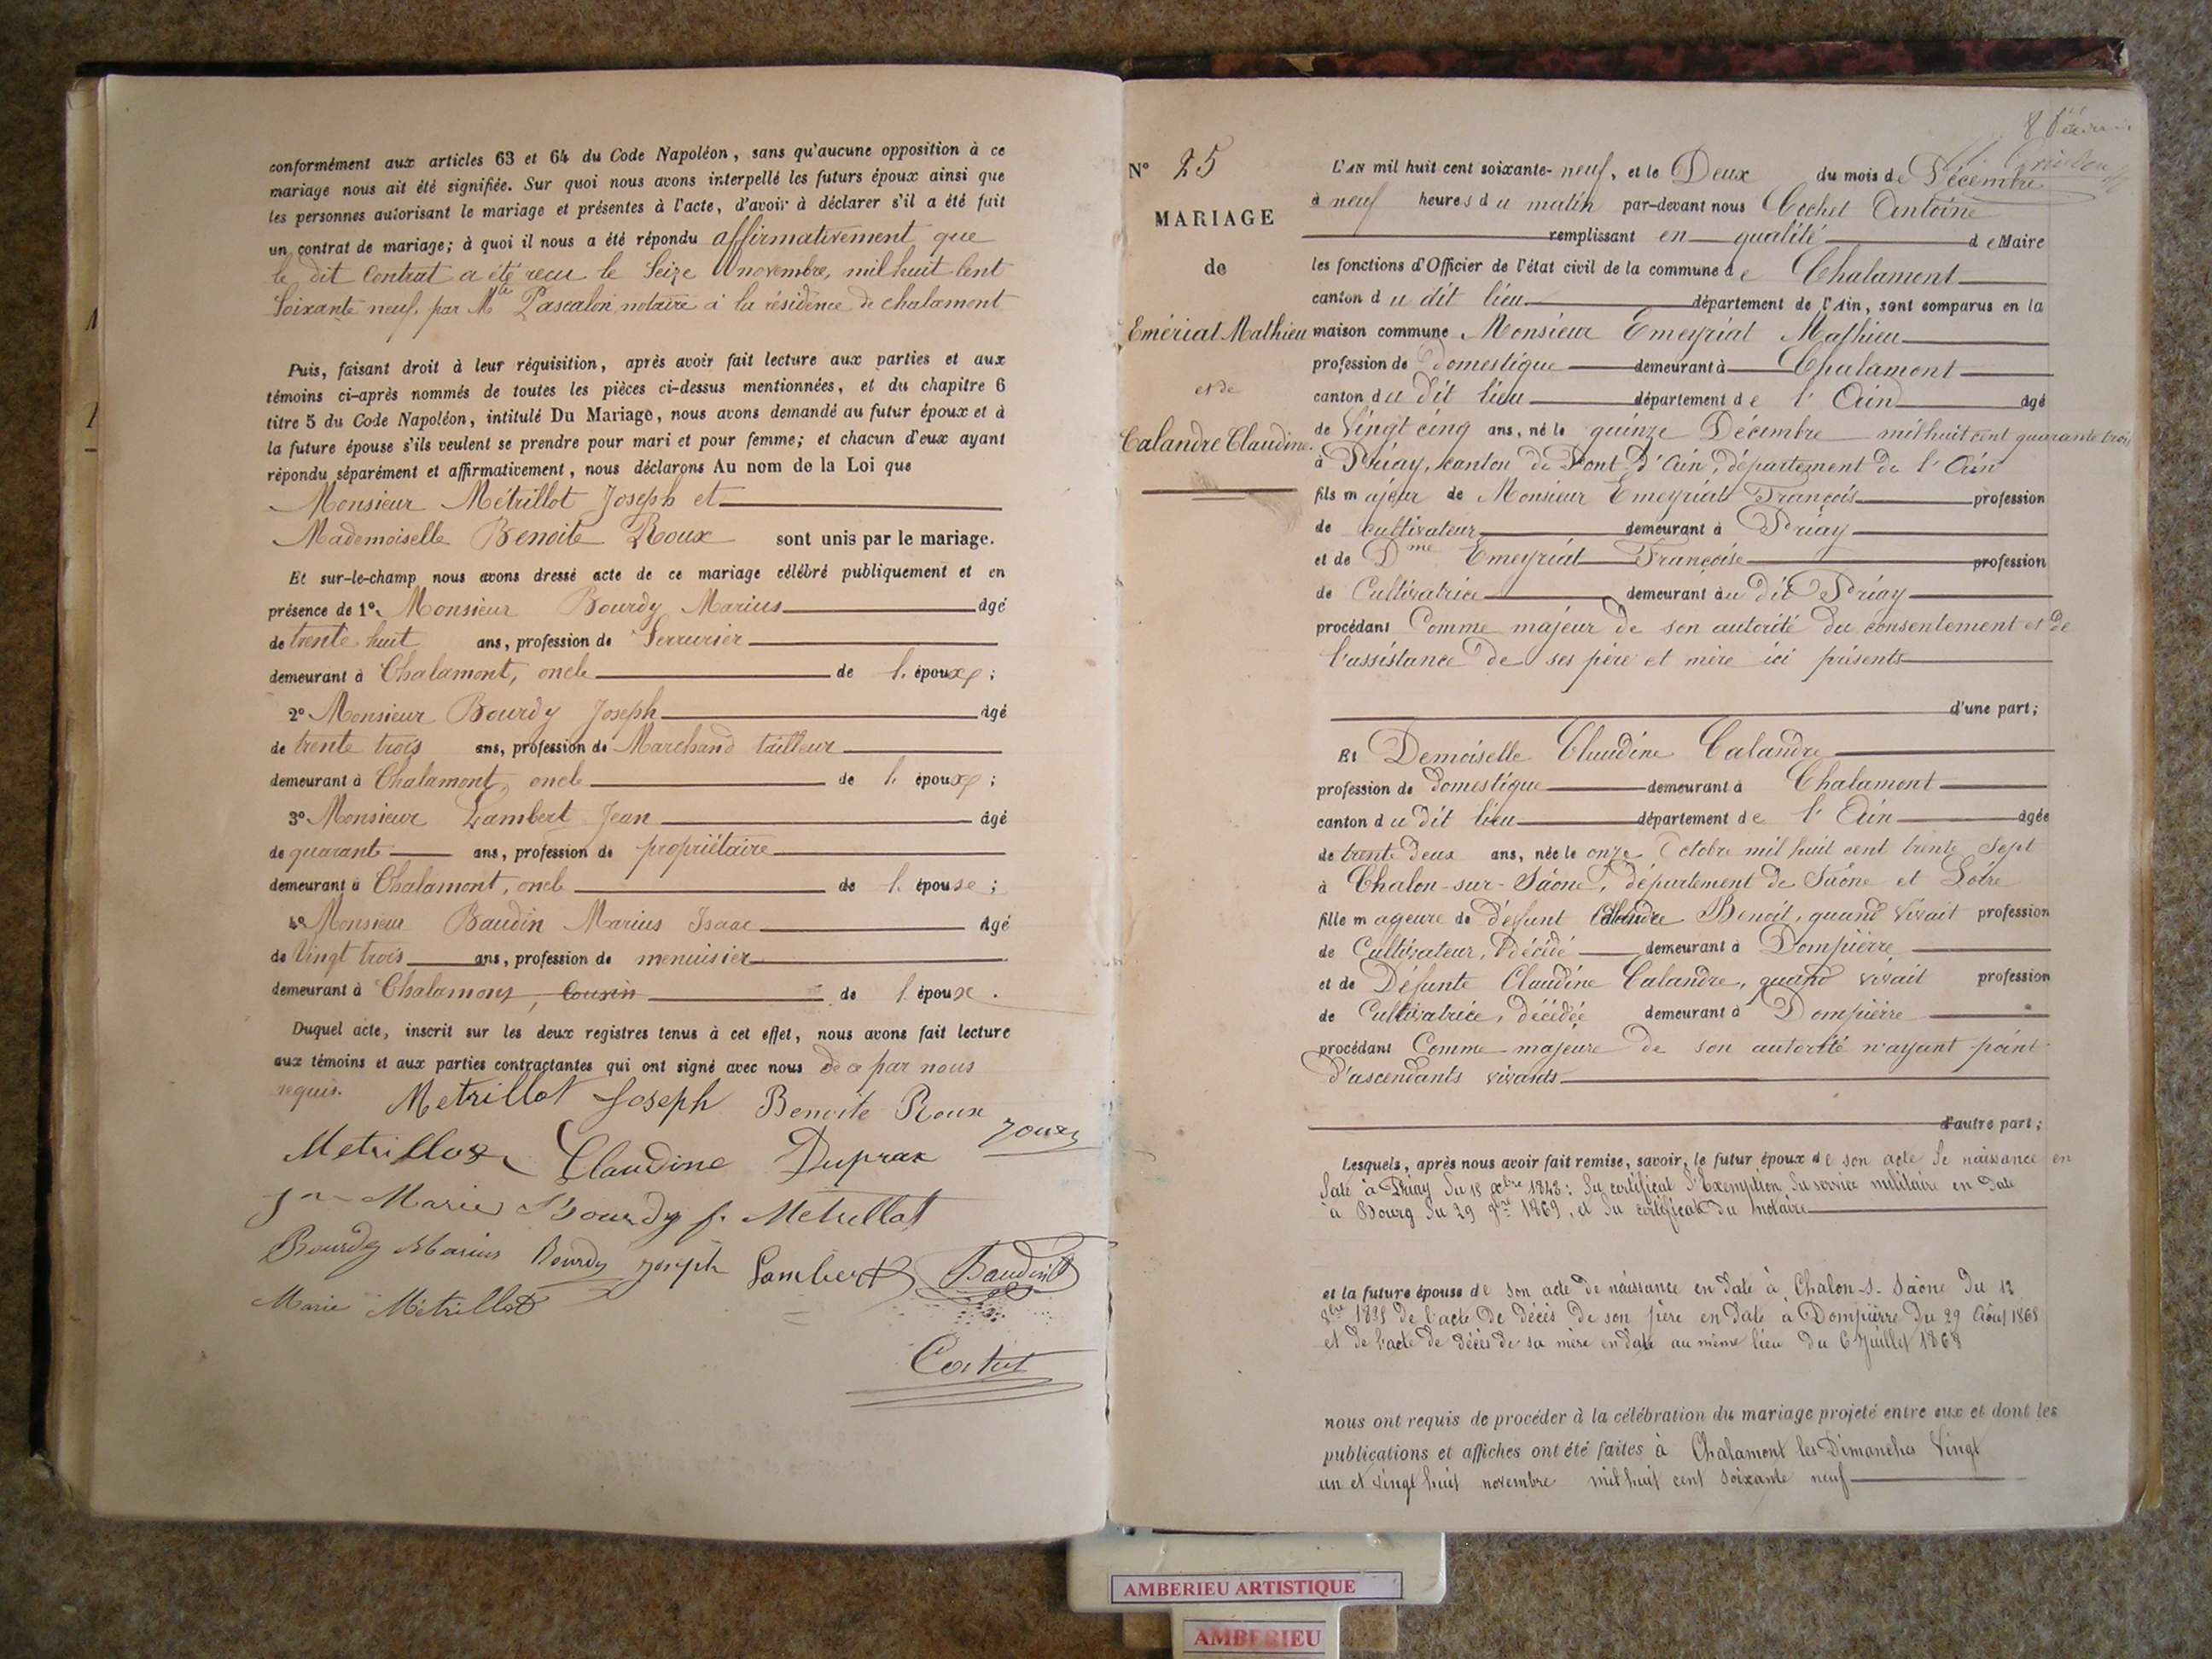 conformément aux articles 63 et 64 du Code Napoléon, sans qu'aucune opposition à ce
mariage nous ait été signifiée. Sur quoi nous avons interpellé les futurs époux ainsi que
les personnes autorisant le mariage et présentes à l'acte, d'avoir à déclarer s'il a été fait
un contrat de mariage; à quoi il nous a été répondu affirmativement que
le dit Contrat a été recu le Seize novembre, mil huit Cent
Soixante neuf, par Me Pascalon, notaire à la résidence de chalamont
Puis, faisant droit à leur réquisition, après avoir fait lecture aux parties et aux
témoins ci-après nommés de toutes les pièces ci-dessus mentionnées, et du chapitre 6
titre 5 du Code Napoléon, intitulé Du Mariage, nous avons demandé au futur époux et à
la future épouse s'ils veulent se prendre pour mari et pour femme; et chacun d'eux ayant
répondu séparément et affirmativement, nous déclarons Au nom de la Loi que
Monsieur Métrillot Joseph et
Mademoiselle Benoite Roux sont unis par le mariage.
Et sur-le-champ nous avons dressé acte de ce mariage célébré publiquement et en
présence de 1°. Monsieur Bourdy Marius âgé
de trente huit ans, profession de Serrurier
demeurant à Chalamont, oncle de l. époux;
2° Monsieur Bourdy Joseph âgé
de trente trois ans, profession de Marchand tailleur
demeurant à Chalamont, oncle de l. époux;
3° Monsieur Lambert Jean âgé
de quarant ans, profession de propriétaire
demeurant à Chalamont, oncle de l. épouse;
4° Monsieur Baudin Marius Isaac âgé
de Vingt trois ans, profession de menuisier
demeurant à Chalamont, Cousin de l époux.
Duquel acte, inscrit sur les deux registres tenus à cet effet, nous avons fait lecture
aux témoins et aux parties contractantes qui ont signé avec nous de ce par nous
requis. Metrillot Joseph Benoite Roux
Metrillot Claudine Duprax
Marie Bourdy f. Metrillot
Bourdy Marius Bourdy joseph Lambert Baudin
Marie Métrillot
N° 25
MARIAGE
de
Emériat Mathieu
et de
Calandre Claudine.
L'AN mil huit cent soixante-neuf, et le Deux du mois de Décembre
à neuf heures du matin par-devant nous Cochet Antoine
remplissant en qualité de Maire
les fonctions d'Officier de l'état civil de la commune de Chalamont
canton du dit lieu département de l'Ain, sont comparus en la
maison commune Monsieur Emeyriat Mathieu
profession de Domestique demeurant à Chalamont
canton du dit lieu département de l'Ain âgé
de Vingt cinq ans, né le quinze Décembre mil huit cent quarante trois
à Priay, canton de Pont d'Ain, département de l'Ain
fils majeur de Monsieur Emeyriat François profession
de Cultivateur demeurant à Priay
et de Dme Emeyriat Françoise profession
de Cultivatrice demeurant au dit Priay
procédant Comme majeur de son autorité du consentement et de
l'assistance de ses père et mère ici présents
d'une part;
Et Demoiselle Claudine Calandre
profession de Domestique demeurant à Chalamont
canton du dit lieu département de l'Ain âgée
de trente deux ans, née le onze Octobre mil huit cent trente Sept
à Chalon-sur-Saône, département de Saône et Loire
fille mageure de défunt Calandre Benoit, quand vivait profession
de Cultivateur, décédé demeurant à Dompierre
et de Défunte Claudine Calandre, quand vivait profession
de Cultivatrice, décédée demeurant à Dompierre
procédant Comme majeure de son autorité n'ayant point
d'ascendants vivants
d'autre part;
Lesquels, après nous avoir fait remise, savoir, le futur époux de son acte de naissance en
date à Priay du 15 xbre 1843: du certificat d'Exemption du service militaire en date
à Bourg du 29 9bre 1869, et du certificat du notaire
et la future épouse de son acte de naissance en date à Chalon-s-Saône du 12
8bre de l'acte de décès de son père en date à Dompierre du 29 Août 1868
et de l'acte de décès de sa mère en date au même lieu du 6 Juillet 1868
nous ont requis de procéder à la célébration du mariage projeté entre eux et dont les
publications et affiches ont été faites à Chalamont les Dimanches Vingt
un et vingt huit novembre mil huit cent soixante neuf
AMBERIEU ARTISTIQUE
AMBERIEU